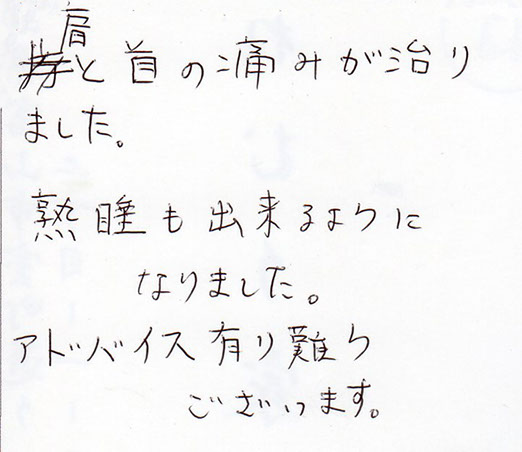 肩と首の痛みが治り
ました。
熟睡も出来るように
なりました。
アドバイス有り難う
ございます。